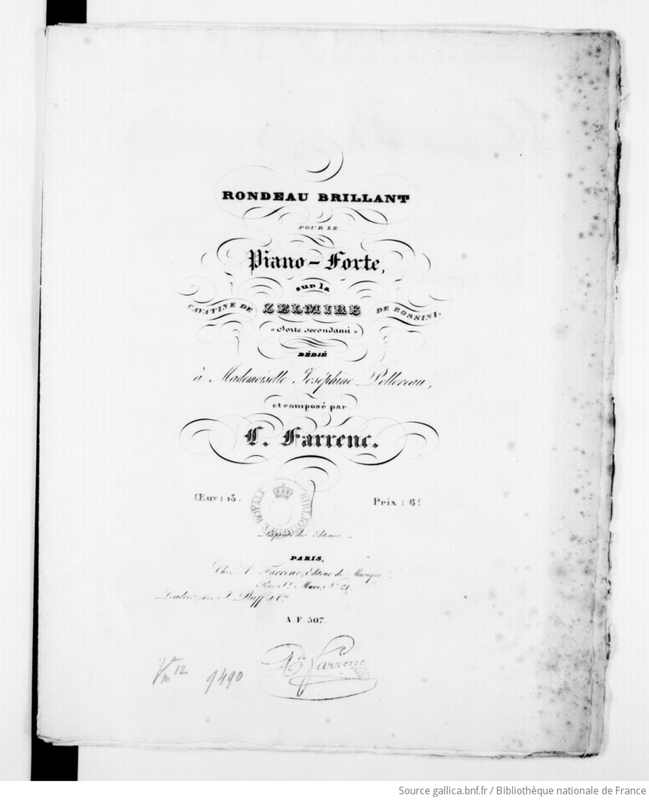 RONDEAU BRILLANT
POUR LE
Piano-Forte,
sur la
CAVATINE DE ZELMIRE DE ROSSINI.
«Sorte secondami»
DÉDIÉ
à Mademoiselle Joséphine Pellereau,
et composé par
L. Farrenc.
Œuv: 13. Prix: 6f
BIBLIOTHÈQUE ROYALE
Propriété des Editeurs
PARIS,
Chez A. Farrenc, Editeur de Musique
Rue St. Marc, No. 21
Londres, chez
A.F. 507.
Vm 12 9490
Ae Farrenc
Source gallica.bnf.fr / Bibliothèque nationale de France